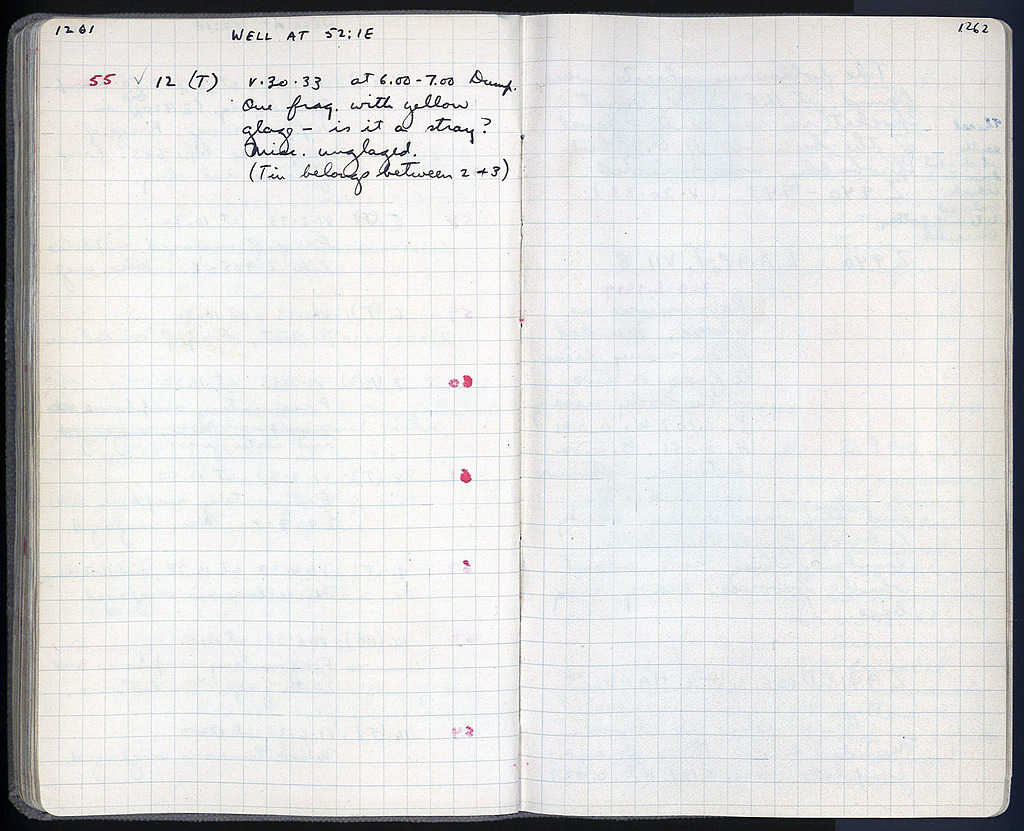 1261
WELL AT 52:IE
55 ✓ 12 (T) V.30.33 at 6.00-7.00 Dump.
One frag. with yellow
glaze - is it a stray?
Misc. unglazed.
(Tin belongs between 2 + 3)
1262